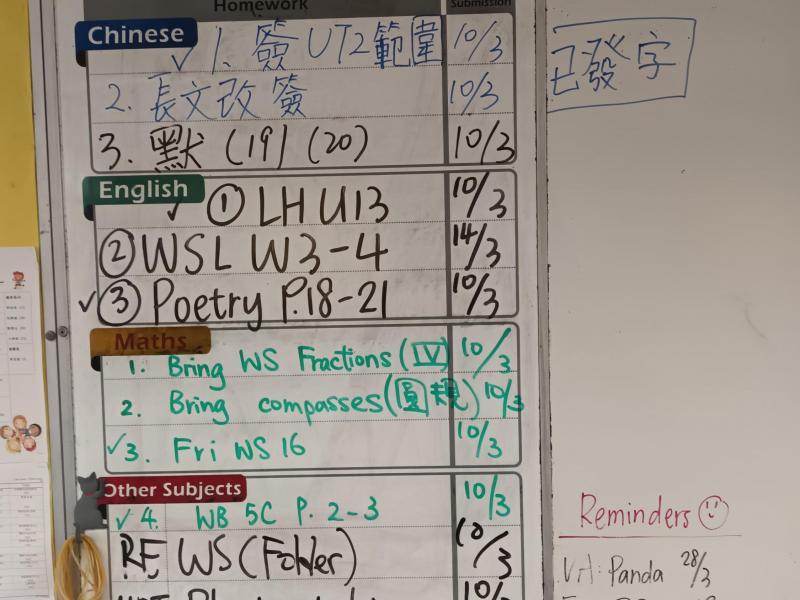 Homework Submission
Chinese
✓ 1. 簽 UT2 範圍 10/3
2. 長文改簽 10/3
3. 默 (19) (20) 10/3
English
✓ ① LH U13 10/3
② WSL W3-4 14/3
✓ ③ Poetry P.18-21 10/3
Maths
1. Bring WS Fractions (IV) 10/3
2. Bring compasses (圓規) 10/3
✓ 3. Fri WS 16 10/3
Other Subjects
✓ 4. WB 5C P. 2-3 10/3
RE WS (Folder) 10/3
10/
已發字
Reminders
VA: Panda 28/3